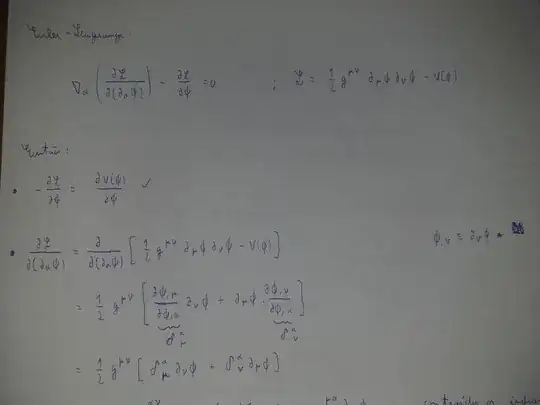 Euler-Lagrange:
∇_α (∂ℒ/∂(∂_αϕ)) - ∂ℒ/∂ϕ = 0 ; ℒ = 1/2 g^{μν} ∂_μϕ ∂_νϕ - V(ϕ)
Então:
• -∂ℒ/∂ϕ = ∂V(ϕ)/∂ϕ ✓
• ∂ℒ/∂(∂_αϕ) = ∂/∂(∂_αϕ) [ 1/2 g^{μν} ∂_μϕ ∂_νϕ - V(ϕ) ] ϕ_{,ν} ≡ ∂_νϕ
= 1/2 g^{μν} [ ∂ϕ_{,μ}/∂ϕ_{,α} ∂_νϕ + ∂_μϕ · ∂ϕ_{,ν}/∂ϕ_{,α} ]
δ^α_μ δ^α_ν
= 1/2 g^{μν} [ δ^α_μ ∂_νϕ + δ^α_ν ∂_μϕ ]